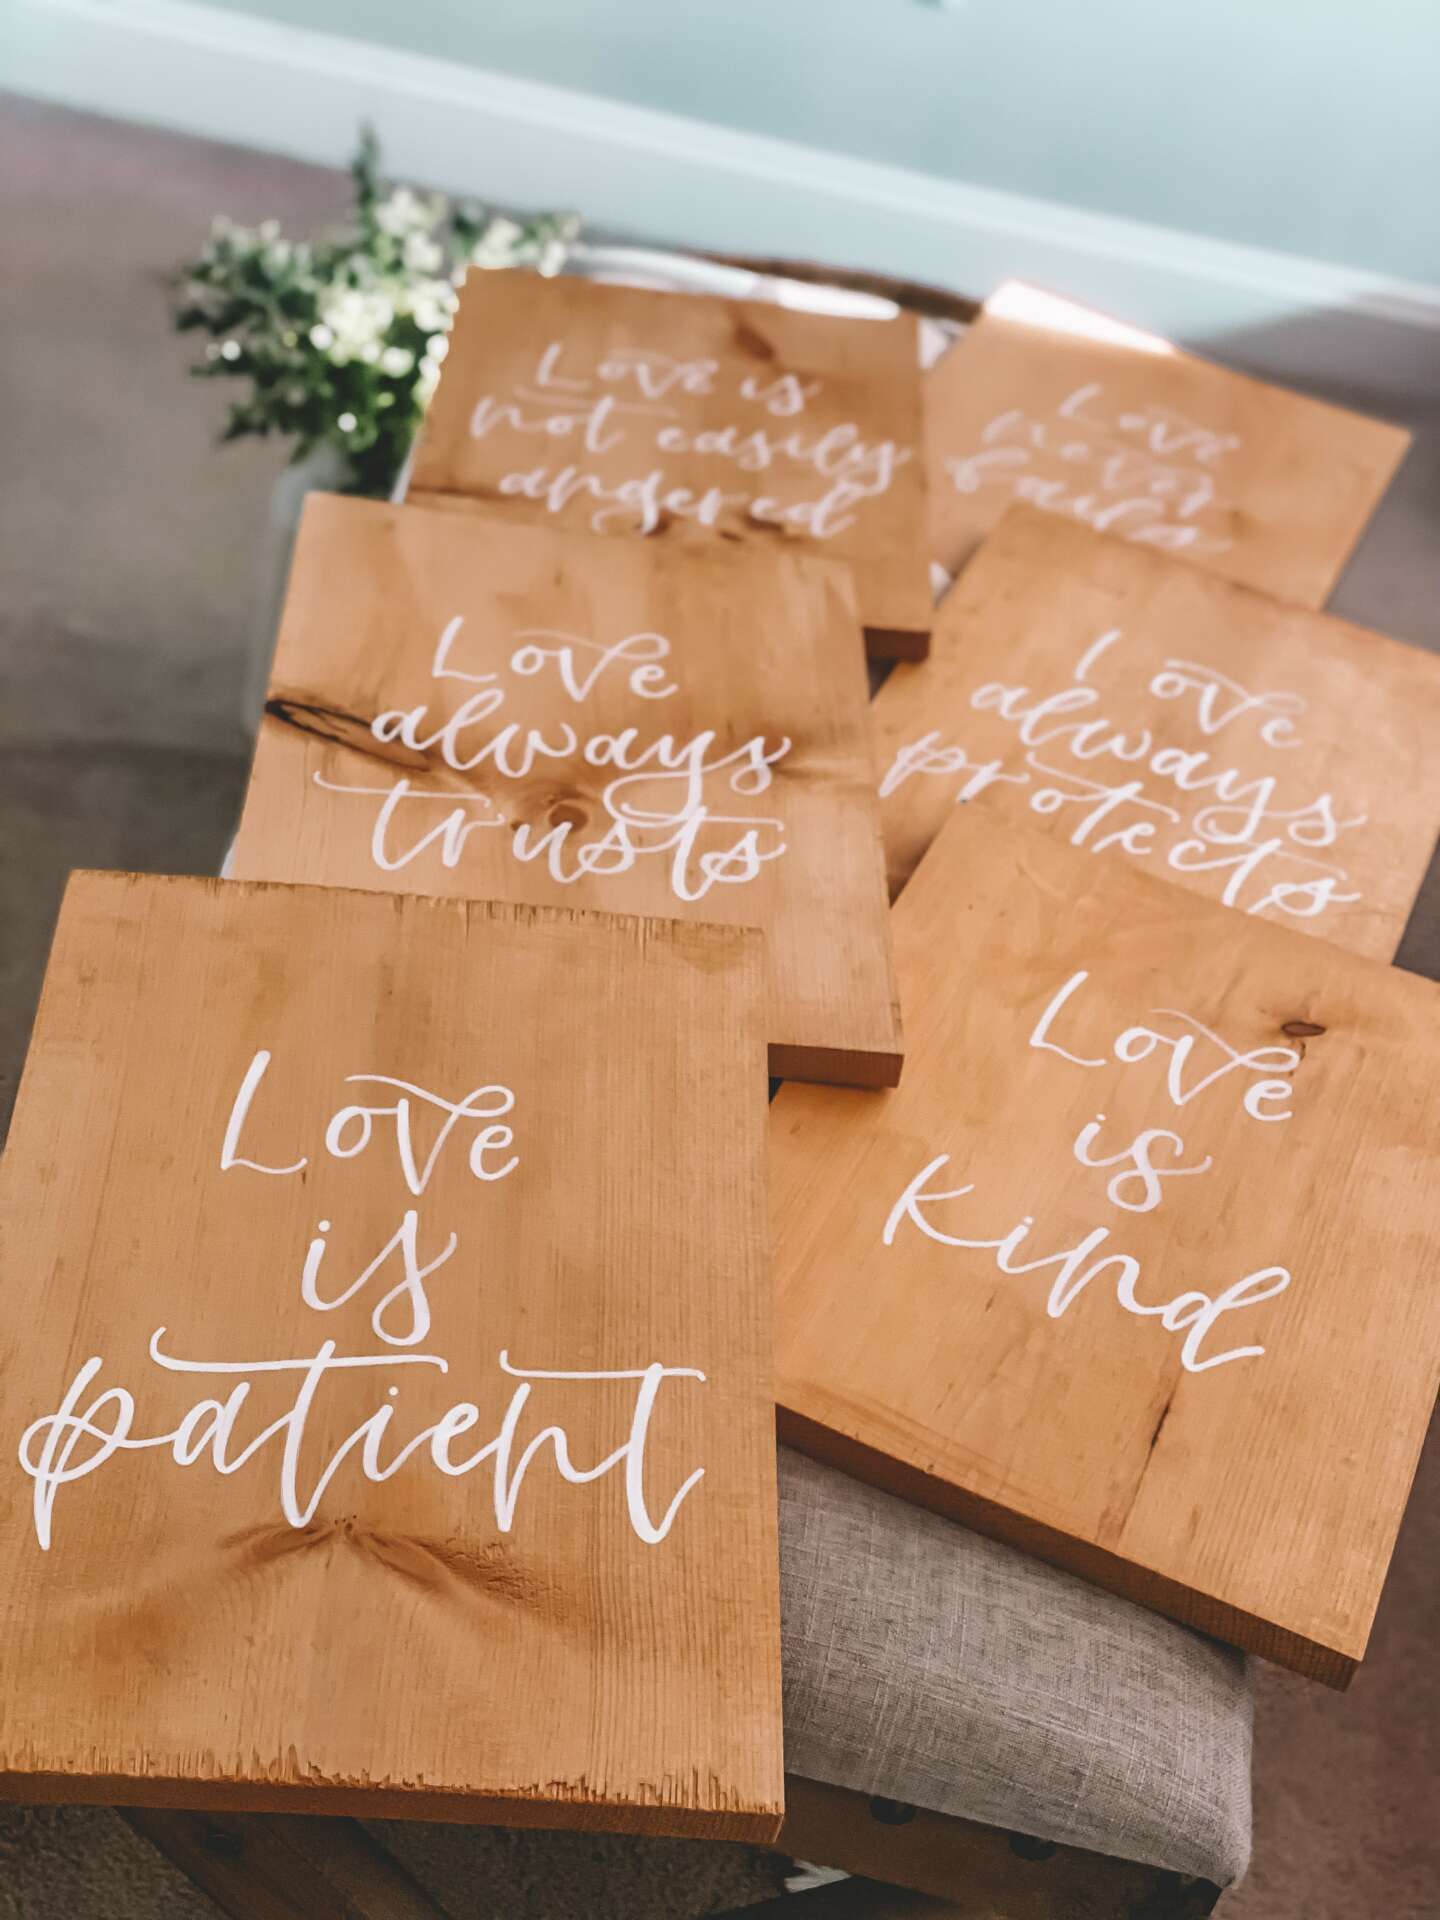 Love is
not easily
angered
Love
never
fails
Love
always
trusts
Love
always
protects
Love
is
patient
Love
is
Kind